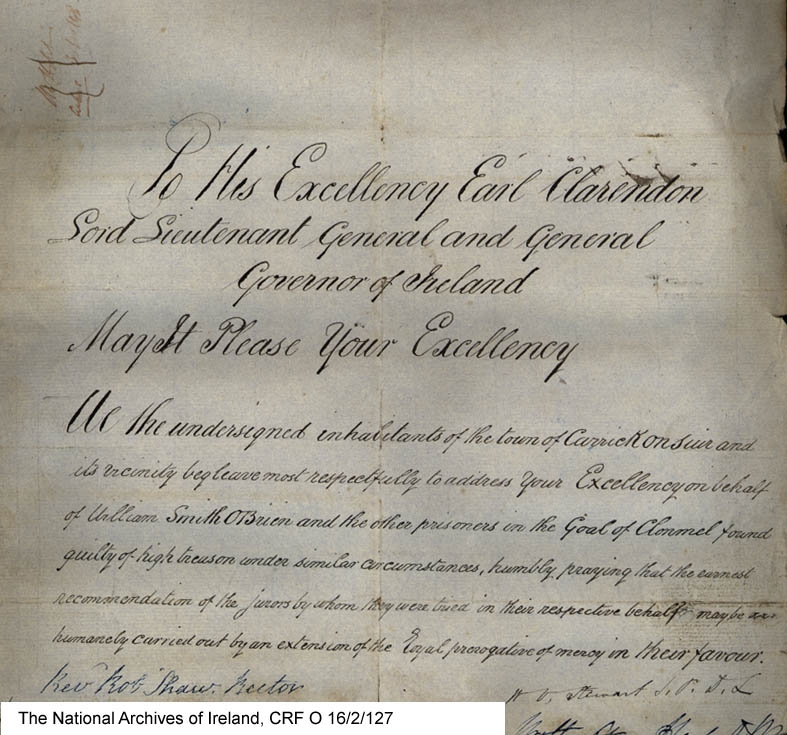 To His Excellency Earl Clarendon
Lord Lieutenant General and General
Governor of Ireland
May It Please Your Excellency
We the undersigned inhabitants of the town of Carrick on Suir and
its vicinity beg leave most respectfully to address Your Excellency on behalf
of William Smith OBrien and the other prisoners in the Goal of Clonmel found
guilty of high treason under similar circumstances, humbly praying that the earnest
recommendation of the jurors by whom they were tried in their respective behalf may be
humanely carried out by an extension of the Royal prerogative of mercy in their favour.
Rev Rob Shaw. Rector
Stewart J. P. D. L
The National Archives of Ireland, CRF O 16/2/127